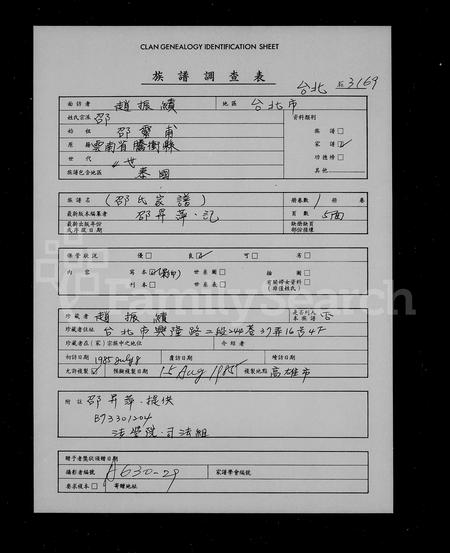 CLAN GENEALOGY IDENTIFICATION SHEET
族譜調查表
台北 3169
面訪者 趙振績 地區 台北市
姓氏宗派 邵 資料類別
始祖 邵 甫 族譜□
原籍 雲南省騰衝縣 家譜☑
世代 世 功德榜□
族譜包含地區 泰國 其他
譜名 (邵氏家譜) 冊卷數 1 冊 卷
最新版本編纂者 邵昇華·記 頁數 5面
最新出版年份或序跋日期 缺冊缺頁部份指標
保管狀況 優□ 良☑ 可□ 劣□
內容 寫本☑(影印) 世系圖□ 插圖□
刊本□ 世系表□ 有關婦女資料(非僅姓氏)□
珍藏者 趙振績 是否列入本族譜 否
珍藏者住址 台北市興隆路二段244巷37弄16号4F
珍藏者在(家)宗族中之地位 介紹者
初訪日期 1985 July 8 覆訪日期 續訪日期
允許複製☑ 預擬複製日期 15 Aug 1985 複製地點 高雄市
附註 邵昇華·提供
B73301204
法學院·司法組
贈予者獎狀頒贈日期
攝影者編號 A630-29 家譜學會編號
要求複本□ 寄贈地址
FamilySearch